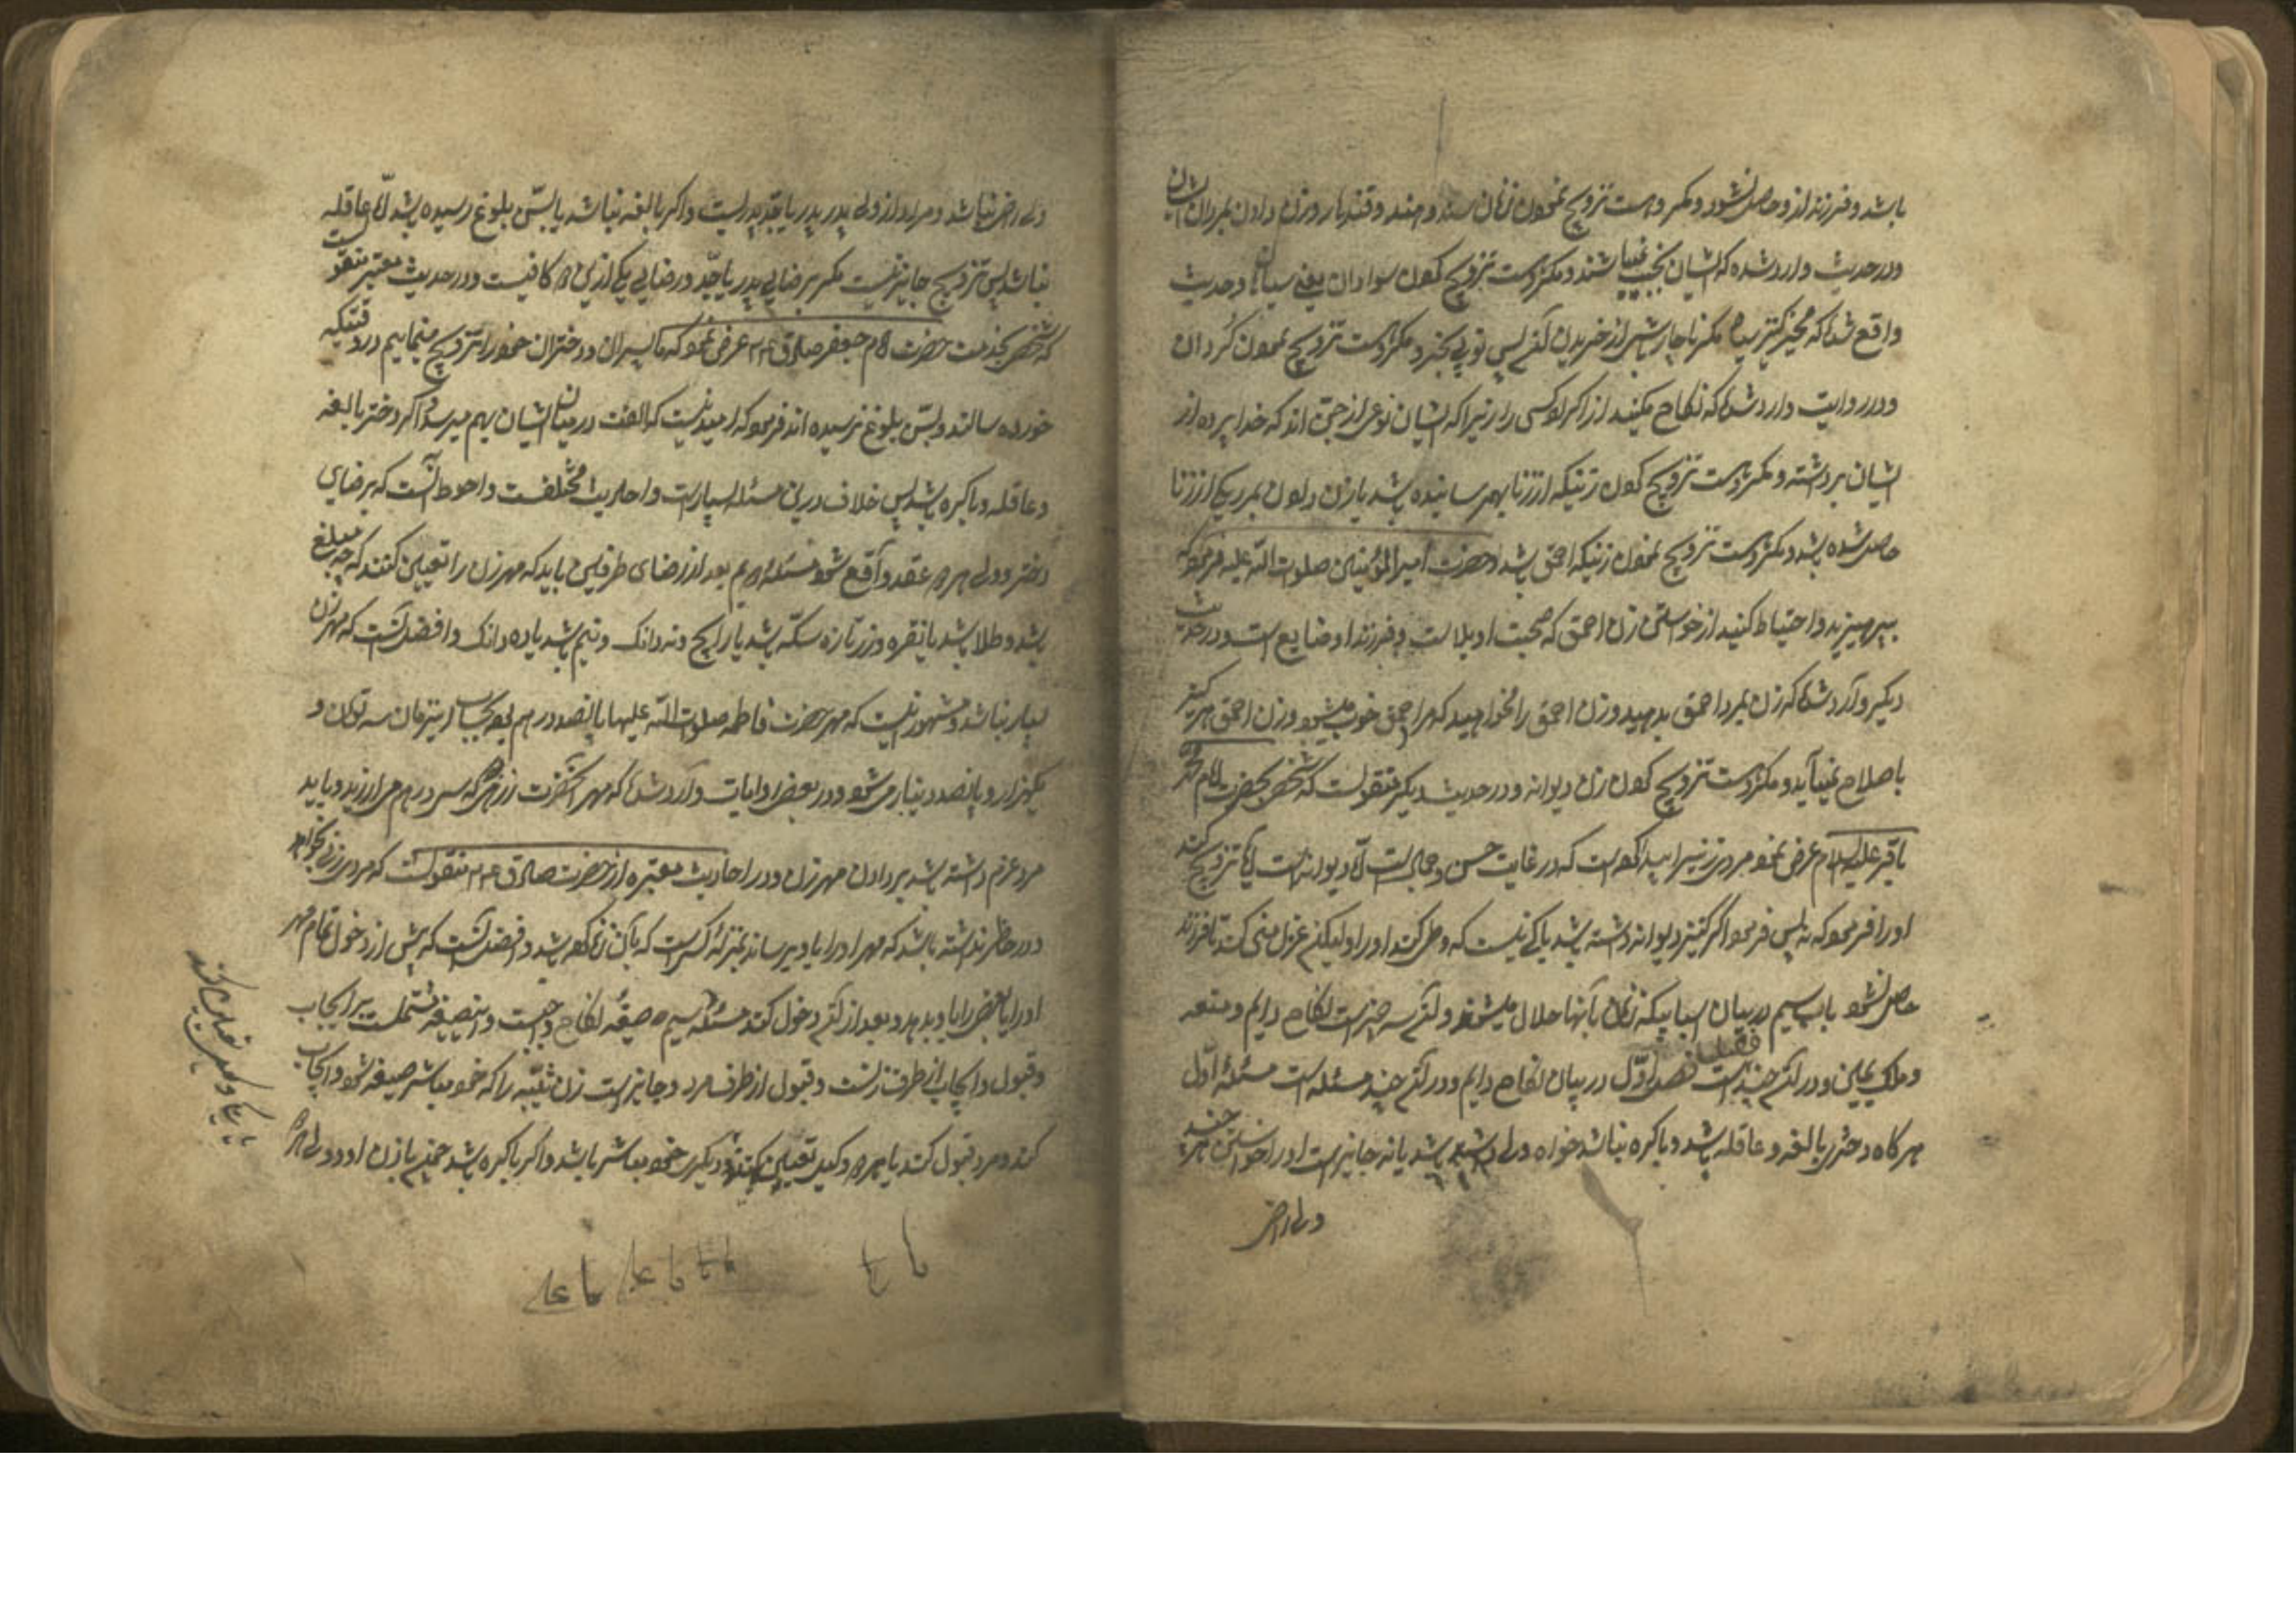 باشد و فرزند از و حاصل نشود و مکروهست تزویج نمودن زنان سند و هند و قندهار و زن دادن بمردان ایشان
و در حدیث وارد شده که ایشان نجیب نمیباشند و مکروهست تزویج کردن سودان یعنی سیاهان و حدیث
واقع شده که مخر کنیز سیاه مگر ناچار باشی از خریدن آن پس نوبی بخر و مکروهست تزویج نمودن کردان
و در روایت وارد شده که نکاح مکنید از اکراد کسی را زیرا که ایشان نوعی از جن اند که خدا پرده از
ایشان برداشته و مکروهست تزویج کردن زنیکه از زنا بهم رسانیده باشد یا زن دادن بمردیکه از زنا
حاصل شده باشد و مکروهست تزویج نمودن زنیکه احمق باشد و حضرت امیر المؤمنین صلوات الله علیه فرموده که
بپرهیزید و احتیاط کنید از خواستن زن احمق که صحبت او بلاست و فرزند او ضایع است و در حدیث
دیگر وارد شده که زن بمرد احمق بدهید و زن احمق را نخواهید که مرد احمق خوب میشود و زن احمق هرگز
باصلاح نمیآید و مکروهست تزویج کردن زن دیوانه و در حدیث دیگر منقولست که شخصی بحضرت امام محمد
باقر علیه السلام عرض نمود مردی زنی پیدا کرده است که در غایت حسن و جمال است اما دیوانه است آیا تزویج کند
او را فرمود که نه پس فرمود اگر کنیز دیوانه داشته باشد باکی نیست که وطی کند او را و لیکن عزل منی کند تا فرزند
حاصل نشود باب سیم در بیان اسبابیکه زنان بآنها حلال میشوند و آن سه چیز است نکاح دایم و متعه
و ملک یمین و در آن چند فصل است فصل اول در بیان نکاح دایم و در آن چند مسئله است مسئله اول
هر گاه دختری بالغه و عاقله باشد و باکره نباشد خواه ولی داشته باشد یا نه جایز است او را خواستن هر چند
ولی راضی
ولی راضی نباشد و مراد از ولی پدر پدر یا جد پدر است و اگر بالغه نباشد یا بسن بلوغ رسیده باشد اما عاقله
نباشد پس تزویج جایز نیست مگر برضای پدر یا جد و رضای یکی ازین دو کافیست و در حدیث معتبر منقولست
که شخصی بخدمت حضرت امام جعفر صادق ع عرض نمود که ما پسران و دختران خود را تزویج مینماییم در وقتیکه
خورده سالند و بسن بلوغ نرسیده اند فرمود که امید نیست که الفت در میان ایشان بهم میرسد و اگر دختر بالغه
و عاقله و باکره باشد پس خلاف درین مسئله بسیار است و احادیث مختلفست و احوط آنست که برضای
دختر و ولی هر دو عقد واقع شود مسئله دویم بعد از رضای طرفین باید که مهر زن را تعیین کنند که چه مبلغ
باشد و طلا باشد یا نقره و زر تازه سکه باشد یا رایج و نه دانک و نیم باشد یا ده دانک و افضل آنست که مهر زن
بسیار نباشد و مشهور اینست که مهر حضرت فاطمه صلوات الله علیها پانصد درهم بوده بحساب این زمان سه تومان و
یکهزار و پانصد دینار میشود و در بعض روایات وارد شده که مهر آنحضرت زرهی بود که سی درهم می ارزید و باید
مرد عزم داشته باشد بر دادن مهر زن و در احادیث معتبره از حضرت صادق ع منقولست که مردی زنی بخواهد
و در خاطر نداشته باشد که مهر او را باو برساند بمنزله کسیست که بآن زن زنا کرده باشد و افضل آنست که پیش از دخول تمام مهر
او را یا بعض را باو بدهد و بعد از آن دخول کند مسئله سیم صیغه نکاح واجبست و این صیغه مشتملست بر ایجاب
و قبول و ایجاب از طرف زنست و قبول از طرف مرد و جایز است زن ثیبه را که خود مباشر صیغه شود و ایجاب
کند و مرد قبول کند یا هر دو وکیل تعیین کنند و دیگری خود مباشر باشد و اگر باکره باشد هم زن او و ولی هر دو
یا یکی وکیل تعیین کند